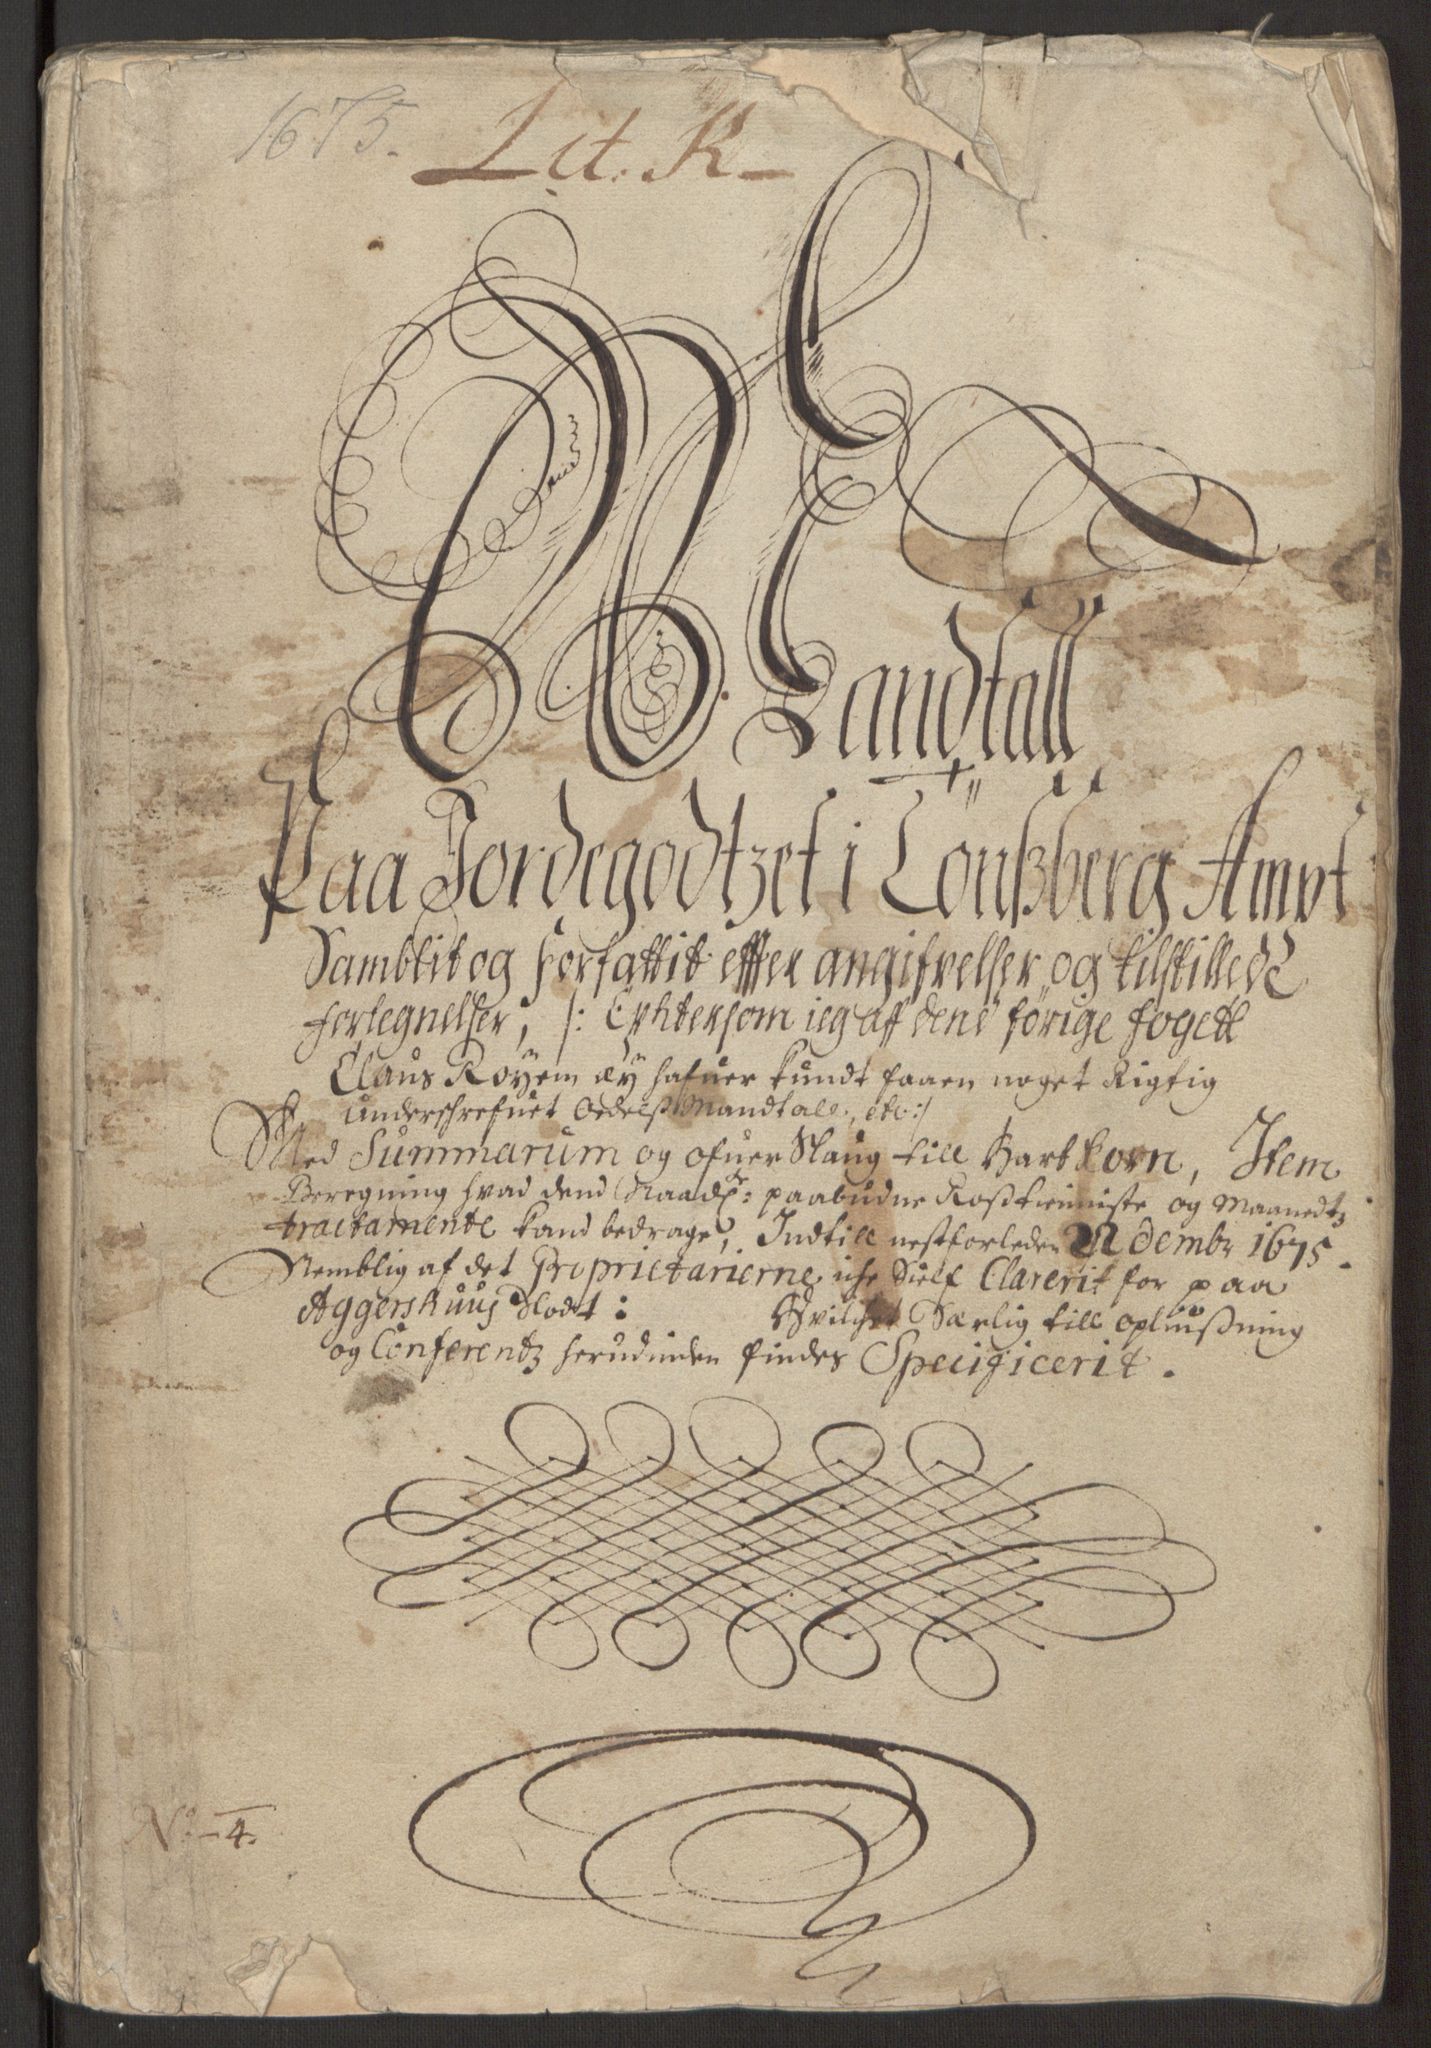 1675.
Lit. K
Mandtall
Paa Jordegodtzet i Tønßberg Ampt
Samblit og forfattit effter angifvelser og tilstillede
forlegnelser, /: Ephtersom ieg aff dend forige foget
Claus Røyem æy hafuer kundt faaen noget Rigtig
underschrefuet Oedelß Mandtall, etc:/
Med Summarum og ofuer Slaug till Hartkorn, Item
Beregning hvad dend Naadst: paabudne Roßtienniste og Maanedtz
tractamente kand bedrage, Indtill nestforleden Decembr 1675.
Nemblig af det Proprietarierne iche Sielf Clarerit for paa
Aggershuus Slodt: Hvilchet Særlig till opliußning
og Conferentz herudinden findes Specificerit.
No - 4.